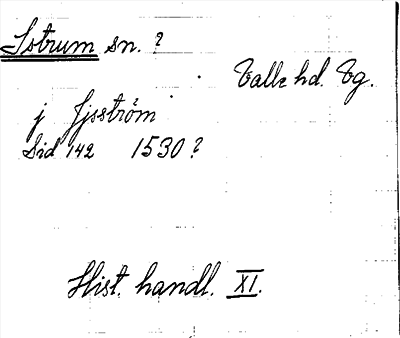 Istrum sn. ?
Valle hd. Vg.
j Ijsström
Sid 142 1530?
Hist. handl. XI.